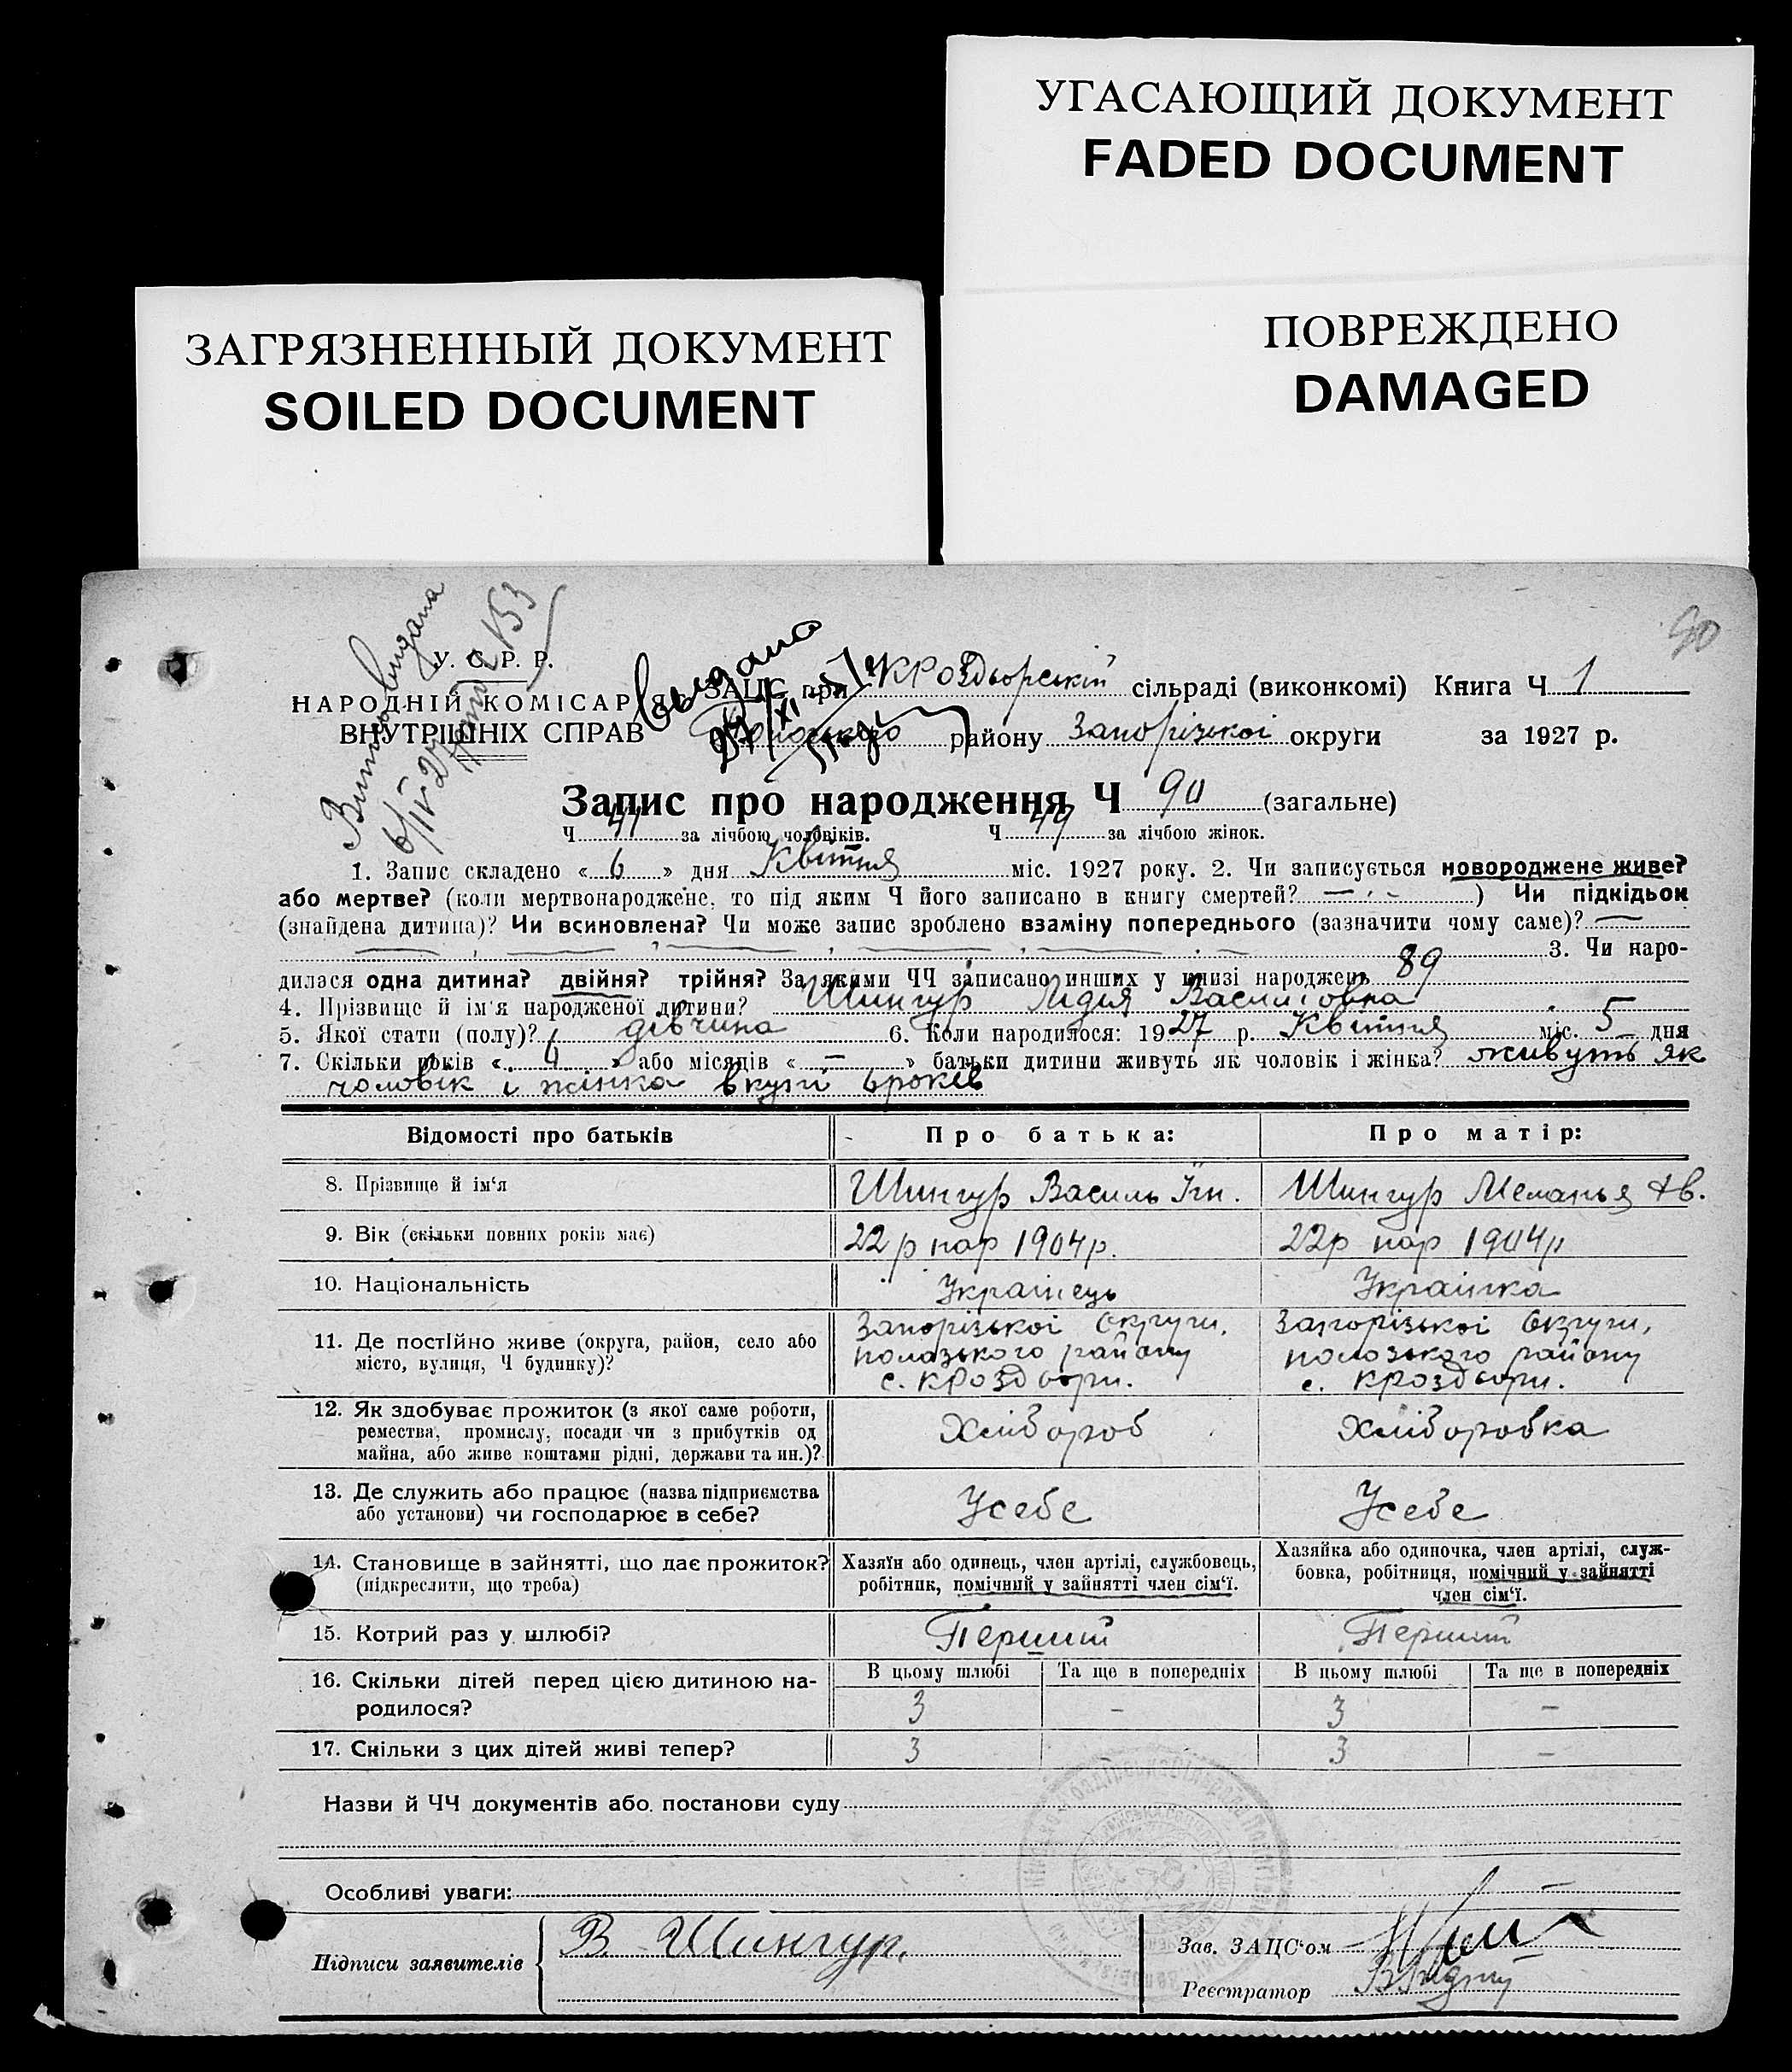 УГАСАЮЩИЙ ДОКУМЕНТ
FADED DOCUMENT
ПОВРЕЖДЕНО
DAMAGED
ЗАГРЯЗНЕННЫЙ ДОКУМЕНТ
SOILED DOCUMENT
90
У. С. Р. Р.
НАРОДНІЙ КОМІСАР
ВНУТРІШНІХ СПРАВ
видана
ЗАЦС при Кроздворській сільраді (виконкомі) Книга Ч 1
району Запорізької округи за 1927 р.
Запис про народження Ч 90 (загальне)
Ч 41 за лічбою чоловіків. Ч 49 за лічбою жінок.
1. Запис складено « 6 » дня Квітня міс. 1927 року. 2. Чи записується новороджене живе?
або мертве? (коли мертвонароджене, то під яким Ч його записано в книгу смертей? — ) Чи підкідьок
(знайдена дитина)? Чи всиновлена? Чи може запис зроблено взаміну попереднього (зазначити чому саме)? —
3. Чи наро-
дилася одна дитина? двійня? трійня? За якими ЧЧ записано инших у книзі народжень 89
4. Прізвище й ім'я народженої дитини? Шингур Лідія Василіовна
5. Якої стати (полу)? дівчина 6. Коли народилося: 1927 р. Квітня міс. 5 дня
7. Скільки років « 6 » або місяців « — » батьки дитини живуть як чоловік і жінка? живуть як
чоловік і жінка вкупі 6 років
Відомості про батьків Про батька: Про матір:
8. Прізвище й ім'я Шингур Василь Гн. Шингур Меланья
9. Вік (скільки повних років має) 22 р нар 1904 р. 22 р нар 1904 р
10. Національність Українець Українка
11. Де постійно живе (округа, район, село або
місто, вулиця, Ч будинку)?
Запорізької Округи,
пологзького району
с. Кроздвори.
Запорізької Округи,
пологзького району
с. Кроздвори.
12. Як здобуває прожиток (з якої саме роботи,
ремества, промислу, посади чи з прибутків од
майна, або живе коштами рідні, держави та ин.)?
Хлібороб Хліборобка
13. Де служить або працює (назва підприємства
або установи) чи господарює в себе?
Усебе Усебе
14. Становище в зайнятті, що дає прожиток?
(підкреслити, що треба)
Хазяїн або одинець, член артілі, службовець,
робітник, помічний у зайнятті член сім'ї.
Хазяйка або одиночка, член артілі, служ-
бовка, робітниця, помічний у зайнятті
член сім'ї.
15. Котрий раз у шлюбі? Перший Перший
16. Скільки дітей перед цією дитиною на-
родилося?
В цьому шлюбі Та ще в попередніх В цьому шлюбі Та ще в попередніх
3 - 3 -
17. Скільки з цих дітей живі тепер? 3 3 -
Назви й ЧЧ документів або постанови суду
Особливі уваги:
Підписи заявителів В Шингур.
Зав. ЗАЦС'ом
Реєстратор